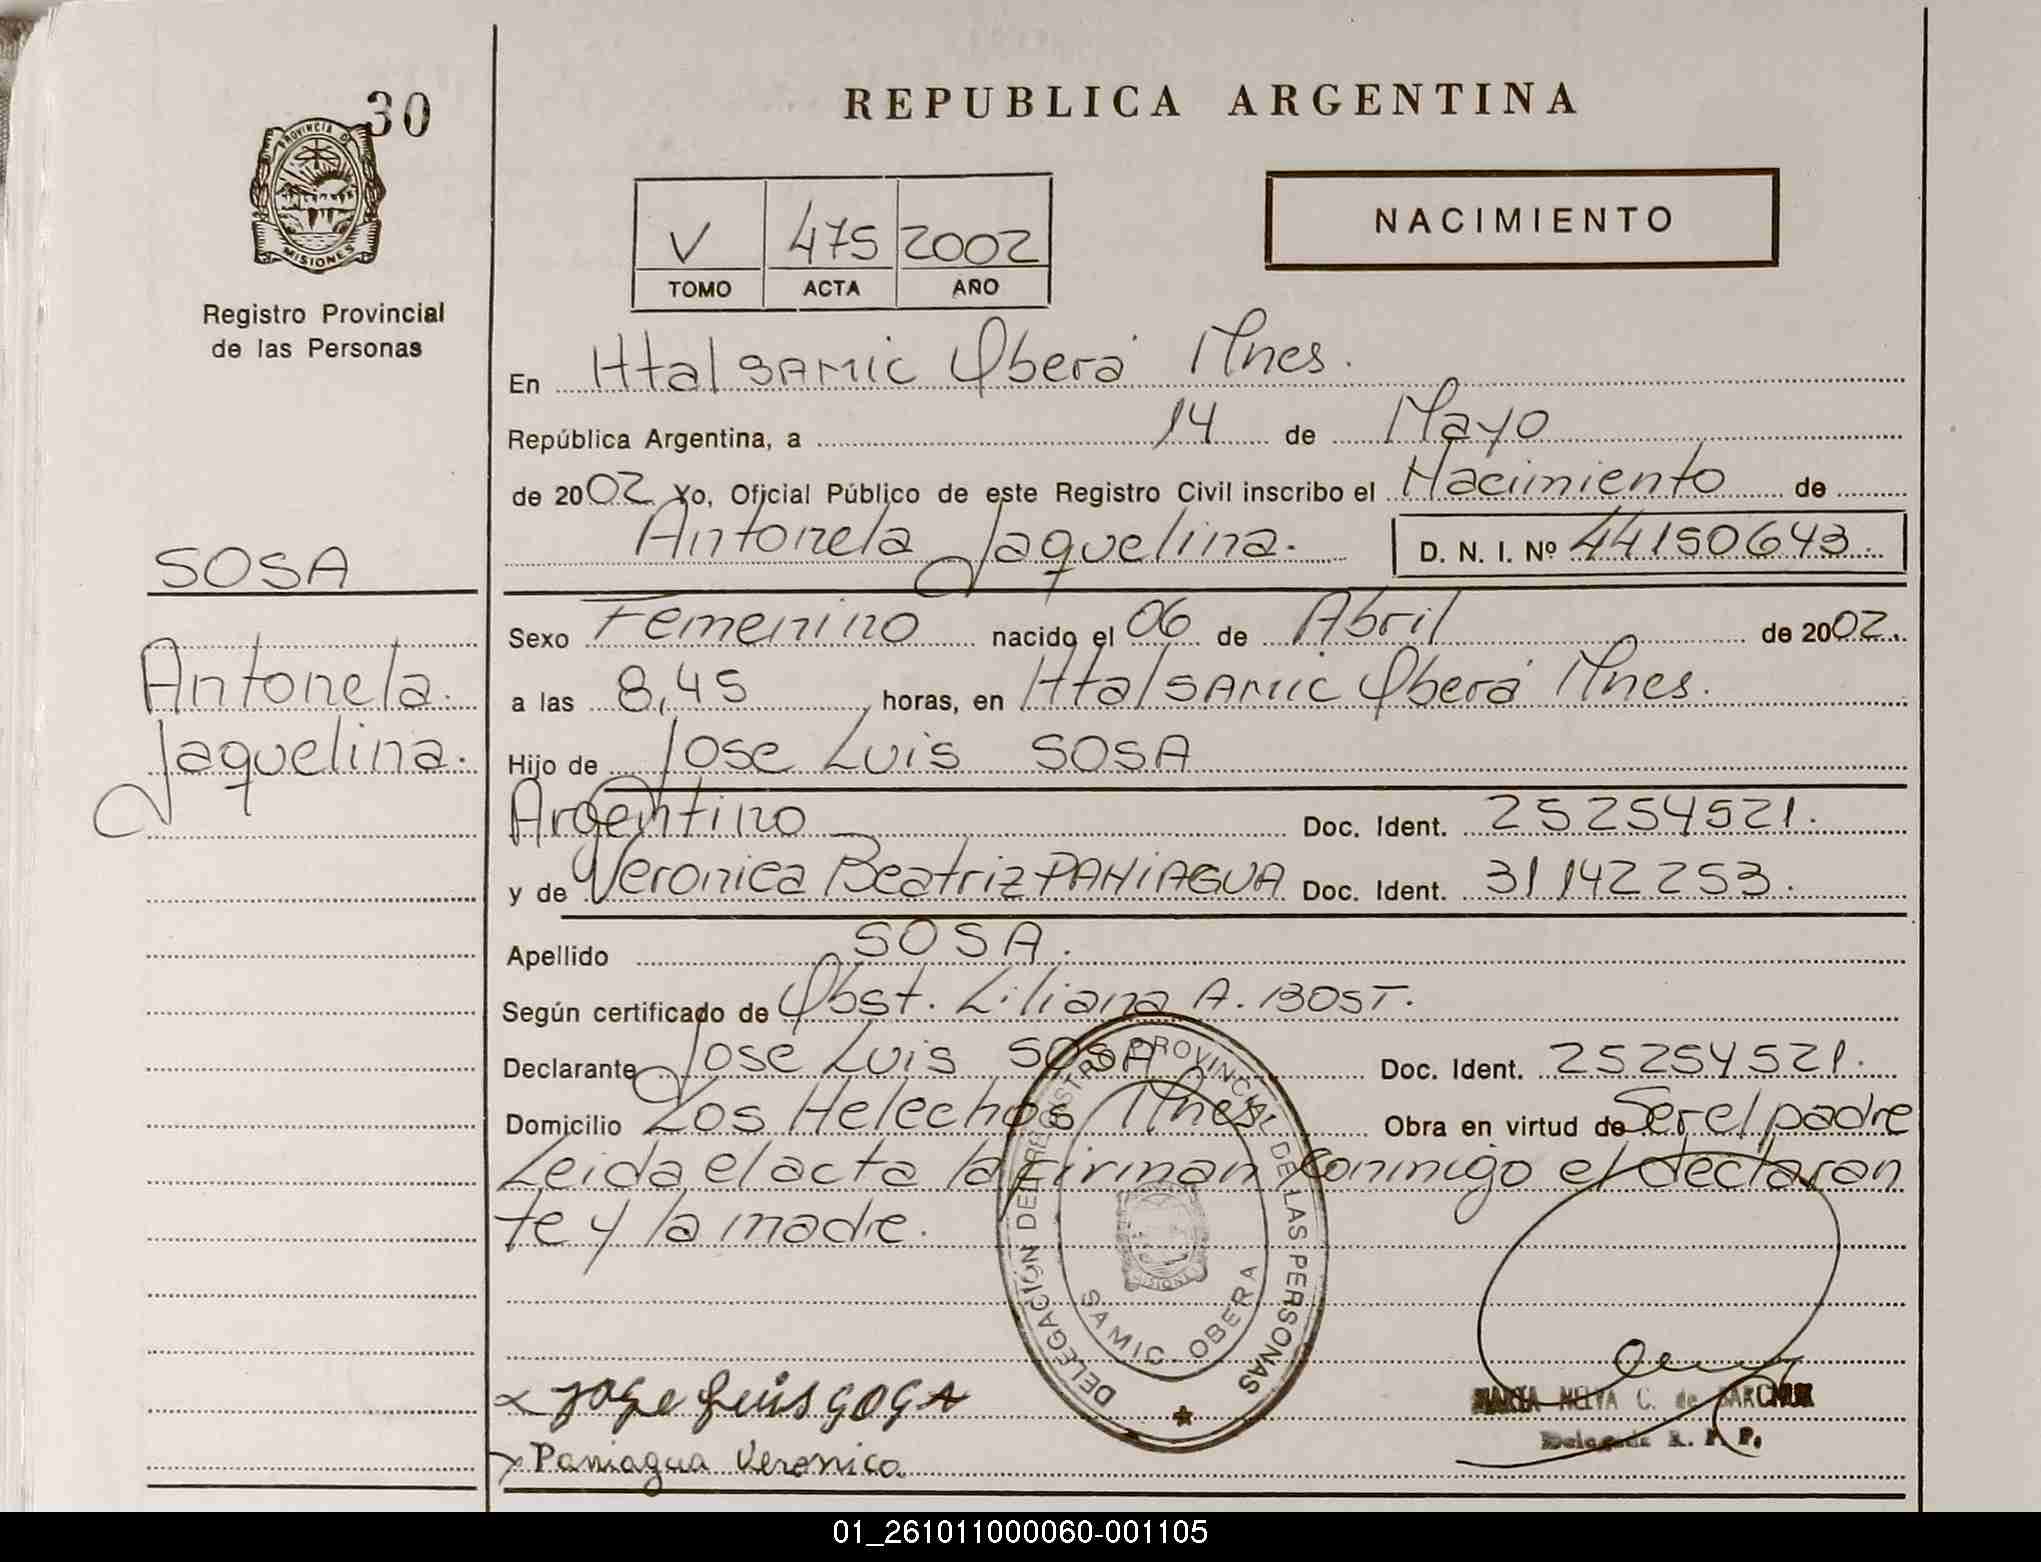 30
PROVINCIA DE
MISIONES
Registro Provincial
de las Personas
SOSA
Antonela
Jaquelina.
REPUBLICA ARGENTINA
V 475 2002
TOMO ACTA AÑO
NACIMIENTO
En Htal SAMIC Oberá Mnes.
República Argentina, a 14 de Mayo
de 2002 Yo, Oficial Público de este Registro Civil inscribo el Nacimiento de
Antonela Jaquelina. D. N. I. Nº 44150643.
Sexo Femenino nacido el 06 de Abril de 2002.
a las 8,45 horas, en Htal SAMIC Oberá Mnes.
Hijo de Jose Luis SOSA
Argentino Doc. Ident. 25254521.
y de Veronica Beatriz PANIAGUA Doc. Ident. 31142253.
Apellido SOSA.
Según certificado de Obst. Liliana A. BOST.
Declarante Jose Luis SOSA Doc. Ident. 25254521.
Domicilio Los Helechos Mnes. Obra en virtud de Ser el padre
Leida el acta la firman conmigo el declaran
te y la madre.
DELEGACIÓN DEL REGISTRO PROVINCIAL DE LAS PERSONAS
MISIONES
SAMIC OBERA
Jose Luis SOSA
Paniagua Veronica.
MARIA NELVA C. de
Delegada R. P. P.
01_261011000060-001105